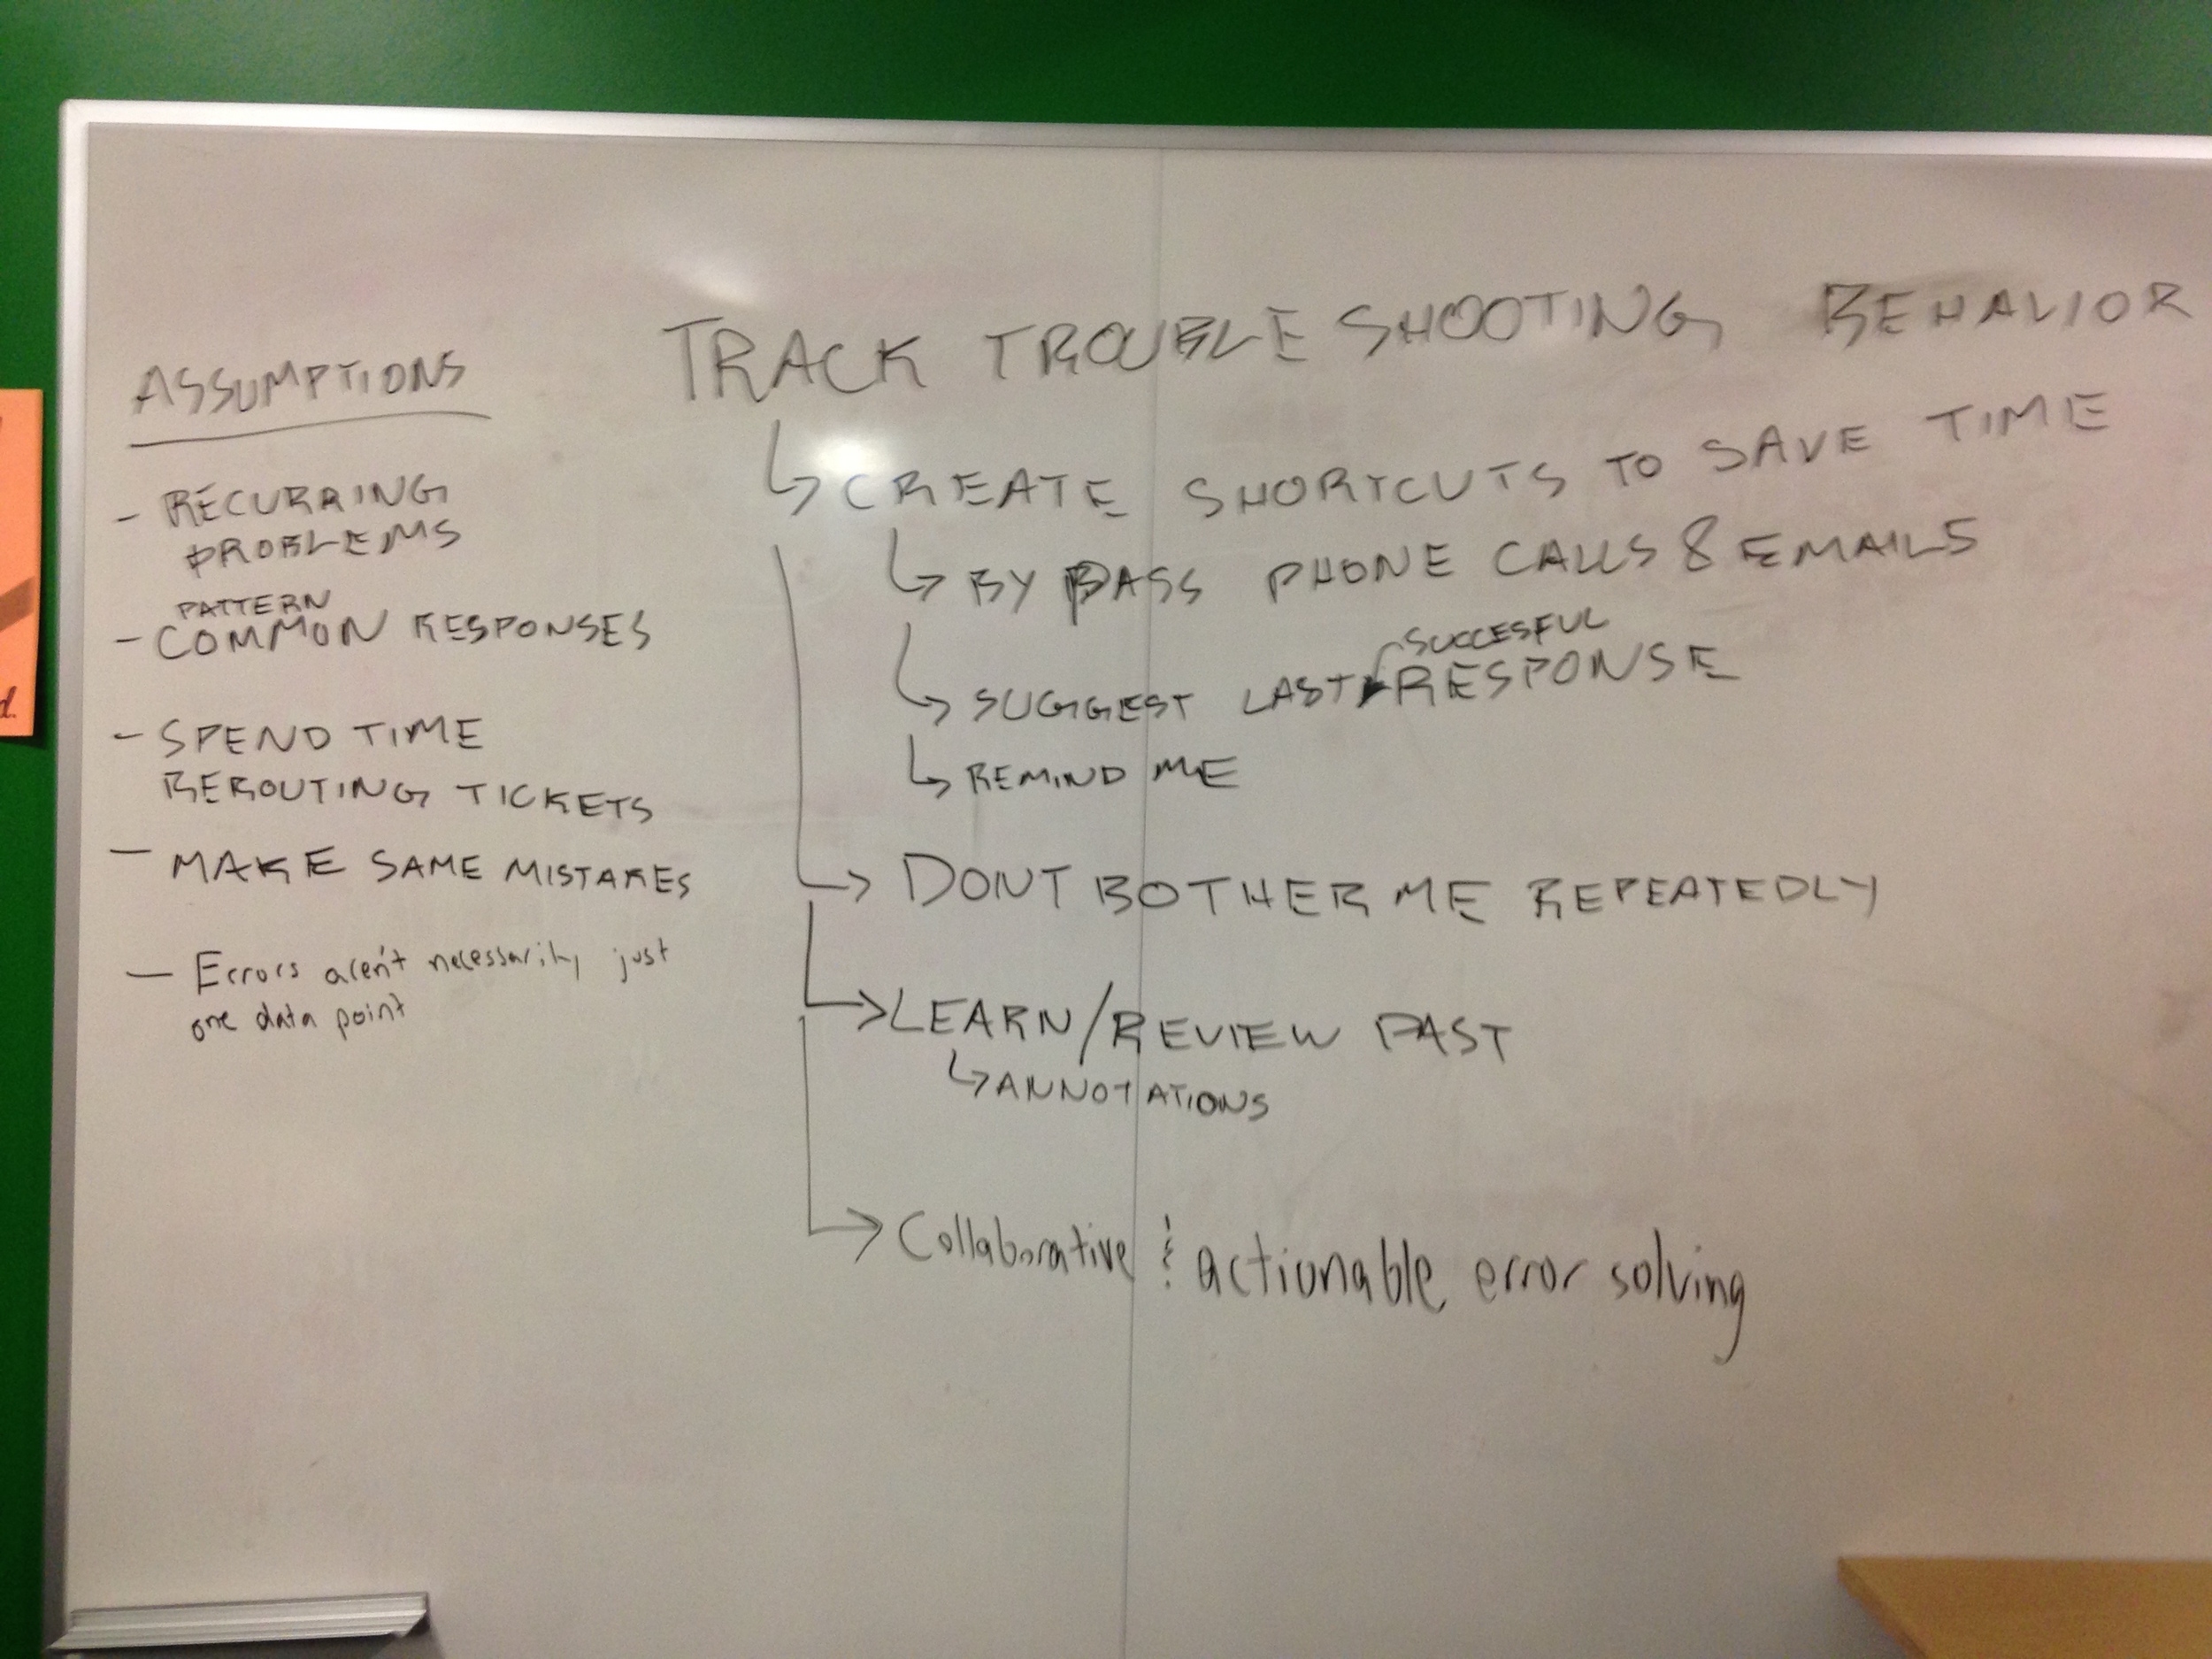 ASSUMPTIONS
- RECURRING
PROBLEMS
PATTERN
- COMMON RESPONSES
- SPEND TIME
REROUTING TICKETS
- MAKE SAME MISTAKES
- Errors aren't necessarily just
one data point
TRACK TROUBLE SHOOTING BEHAVIOR
↳ CREATE SHORTCUTS TO SAVE TIME
↳ BY PASS PHONE CALLS & EMAILS
SUCCESFUL
↳ SUGGEST LAST RESPONSE
↳ REMIND ME
→ DONT BOTHER ME REPEATEDLY
→ LEARN/REVIEW PAST
↳ ANNOTATIONS
→ Collaborative & actionable error solving
d.